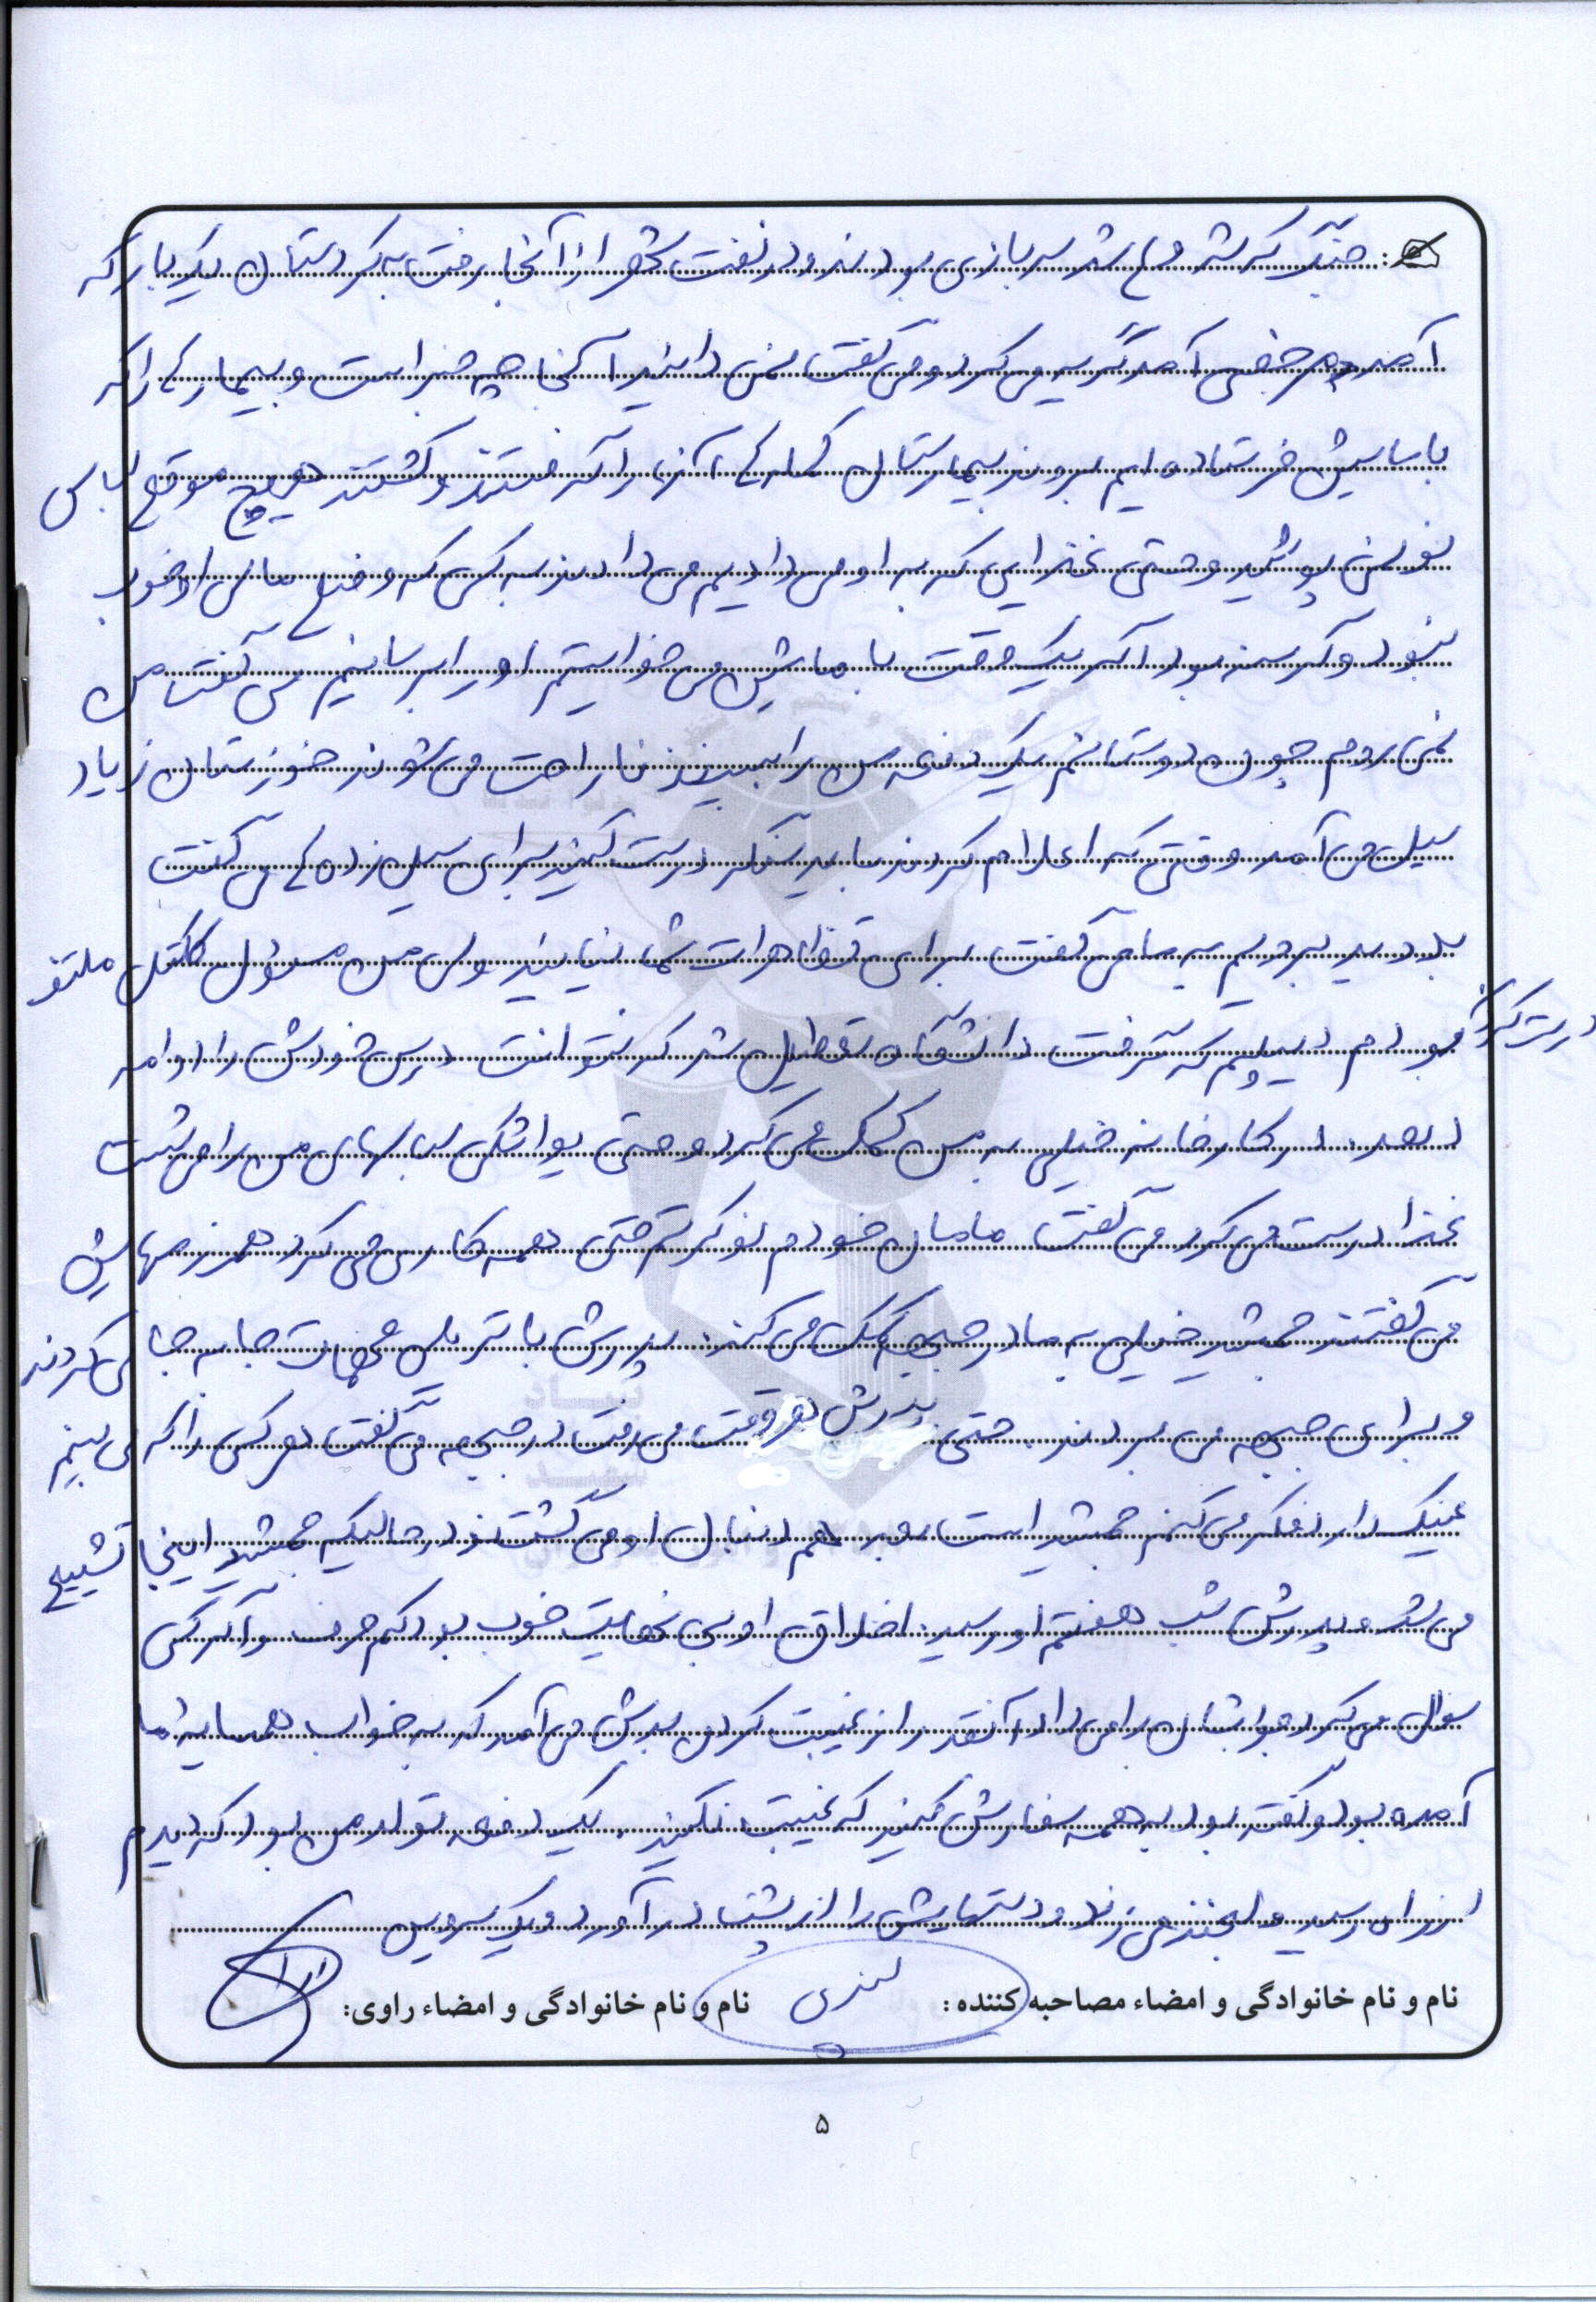 جنگ که شد سربازی بودند و در نفت شهر از آنجا رفت به کردستان یکبار که
آمد مرخصی آمد گریه می کرد و می گفت نمی دانید آنجا چه خبر است و بیمارهای را که
با ماشین فرستاده ایم بروند بیمارستان کمله های آنها را گرفتند و کشتند هیچ موقع لباس
نو نمی پوشید و حتی غذایی که به او می دادیم می دادند به کسی که وضع مالی او خوب
نبود و گرسنه بود اگر یک وقت با ماشین می خواستیم او را برسانیم می گفت من
نمی روم چون دوستانم یک دفعه من را ببینند ناراحت می شوند خوزستان زیاد
سیل می آمد وقتی که اعلام کردند باید سنگر درست کنید برای سیل زده ها می گفت
بلدید برویم به ما می گفت برای تظاهرات شما نیایید ولی من مسئول کوکتل ملتف
درست کردن بودم دیپلم که گرفت دانشگاه تعطیل شد که نتوانست درس خودش را ادامه
دهد. در کارخانه خیلی به من کمک می کرد و حتی یواشکی لباسهای من را می شست
غذا درست می کرد می گفت مامان خودم نوکرتم حتی همه کاری می کرد همرزمهایش
می گفتند جمشید خیلی به ما در جبهه کمک می کند. پدرش با تریلی مهمات جابه جا می کردند
و برای جبهه می بردند. حتی پدرش هر وقت می رفت در جبهه می گفت هر کس را که می بینم
عینک دارد فکر می کنم جمشید است و به هم دنبال او می گشتند در حالیکه جمشید اینجا تشییع
می شد و پدرش شب هفتم او رسید. اخلاق او بی نهایت خوب بود کم حرف و اگر کسی
سؤال می کرد جوابشان را می داد آنقدر از غیبت کردن بدش می آمد که به خواب همسایه ما
آمده بود و گفته بود به همه سفارش کنید که غیبت نکنید. یک دفعه تولد من بود که دیدم
از راه رسید و لبخند می زند و دستهایش را از پشت در آورد و یک سرویس
نام و نام خانوادگی و امضاء مصاحبه کننده: نام و نام خانوادگی و امضاء راوی:
۵